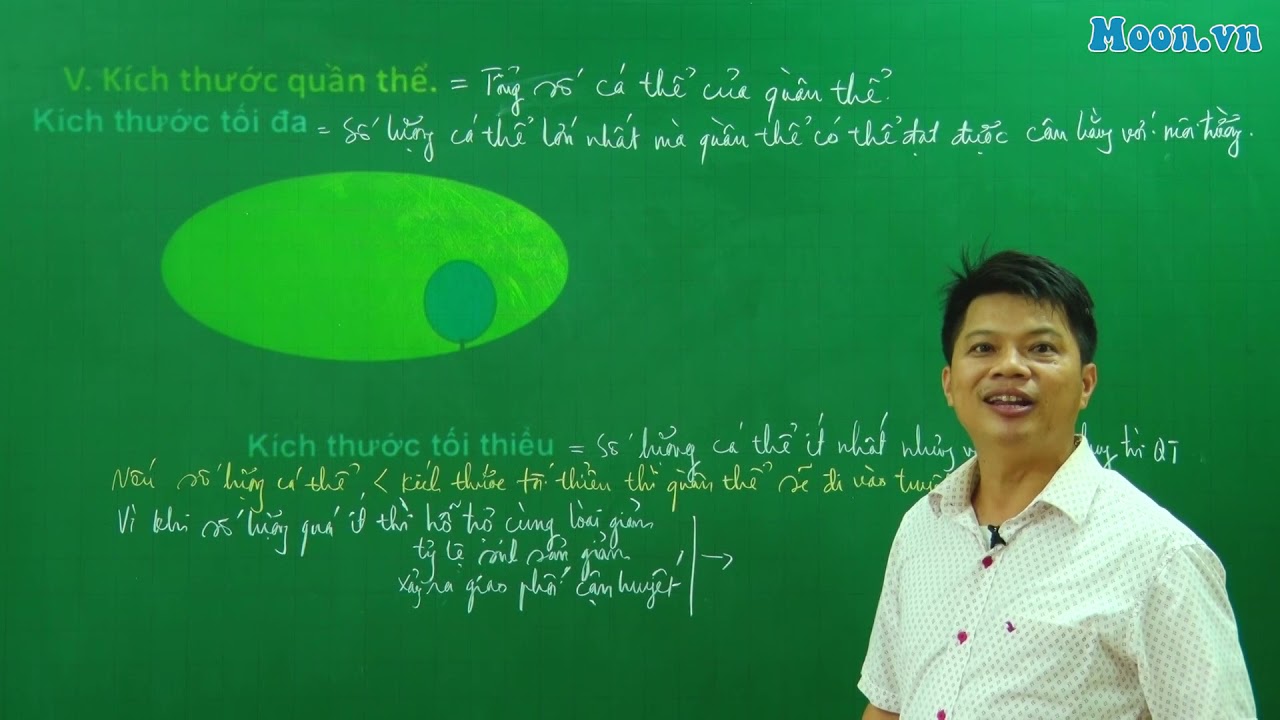 Moon.vn
V. Kích thước quần thể. = Tổng số cá thể của quần thể.
Kích thước tối đa = Số lượng cá thể lớn nhất mà quần thể có thể đạt được cân bằng với môi trường.
Kích thước tối thiểu = Số lượng cá thể ít nhất nhưng duy trì QT
Nếu số lượng cá thể < kích thước tối thiểu thì quần thể sẽ đi vào
Vì khi số lượng quá ít thì hỗ trợ cùng loài giảm
tỷ lệ sinh sản giảm →
xảy ra giao phối cận huyết